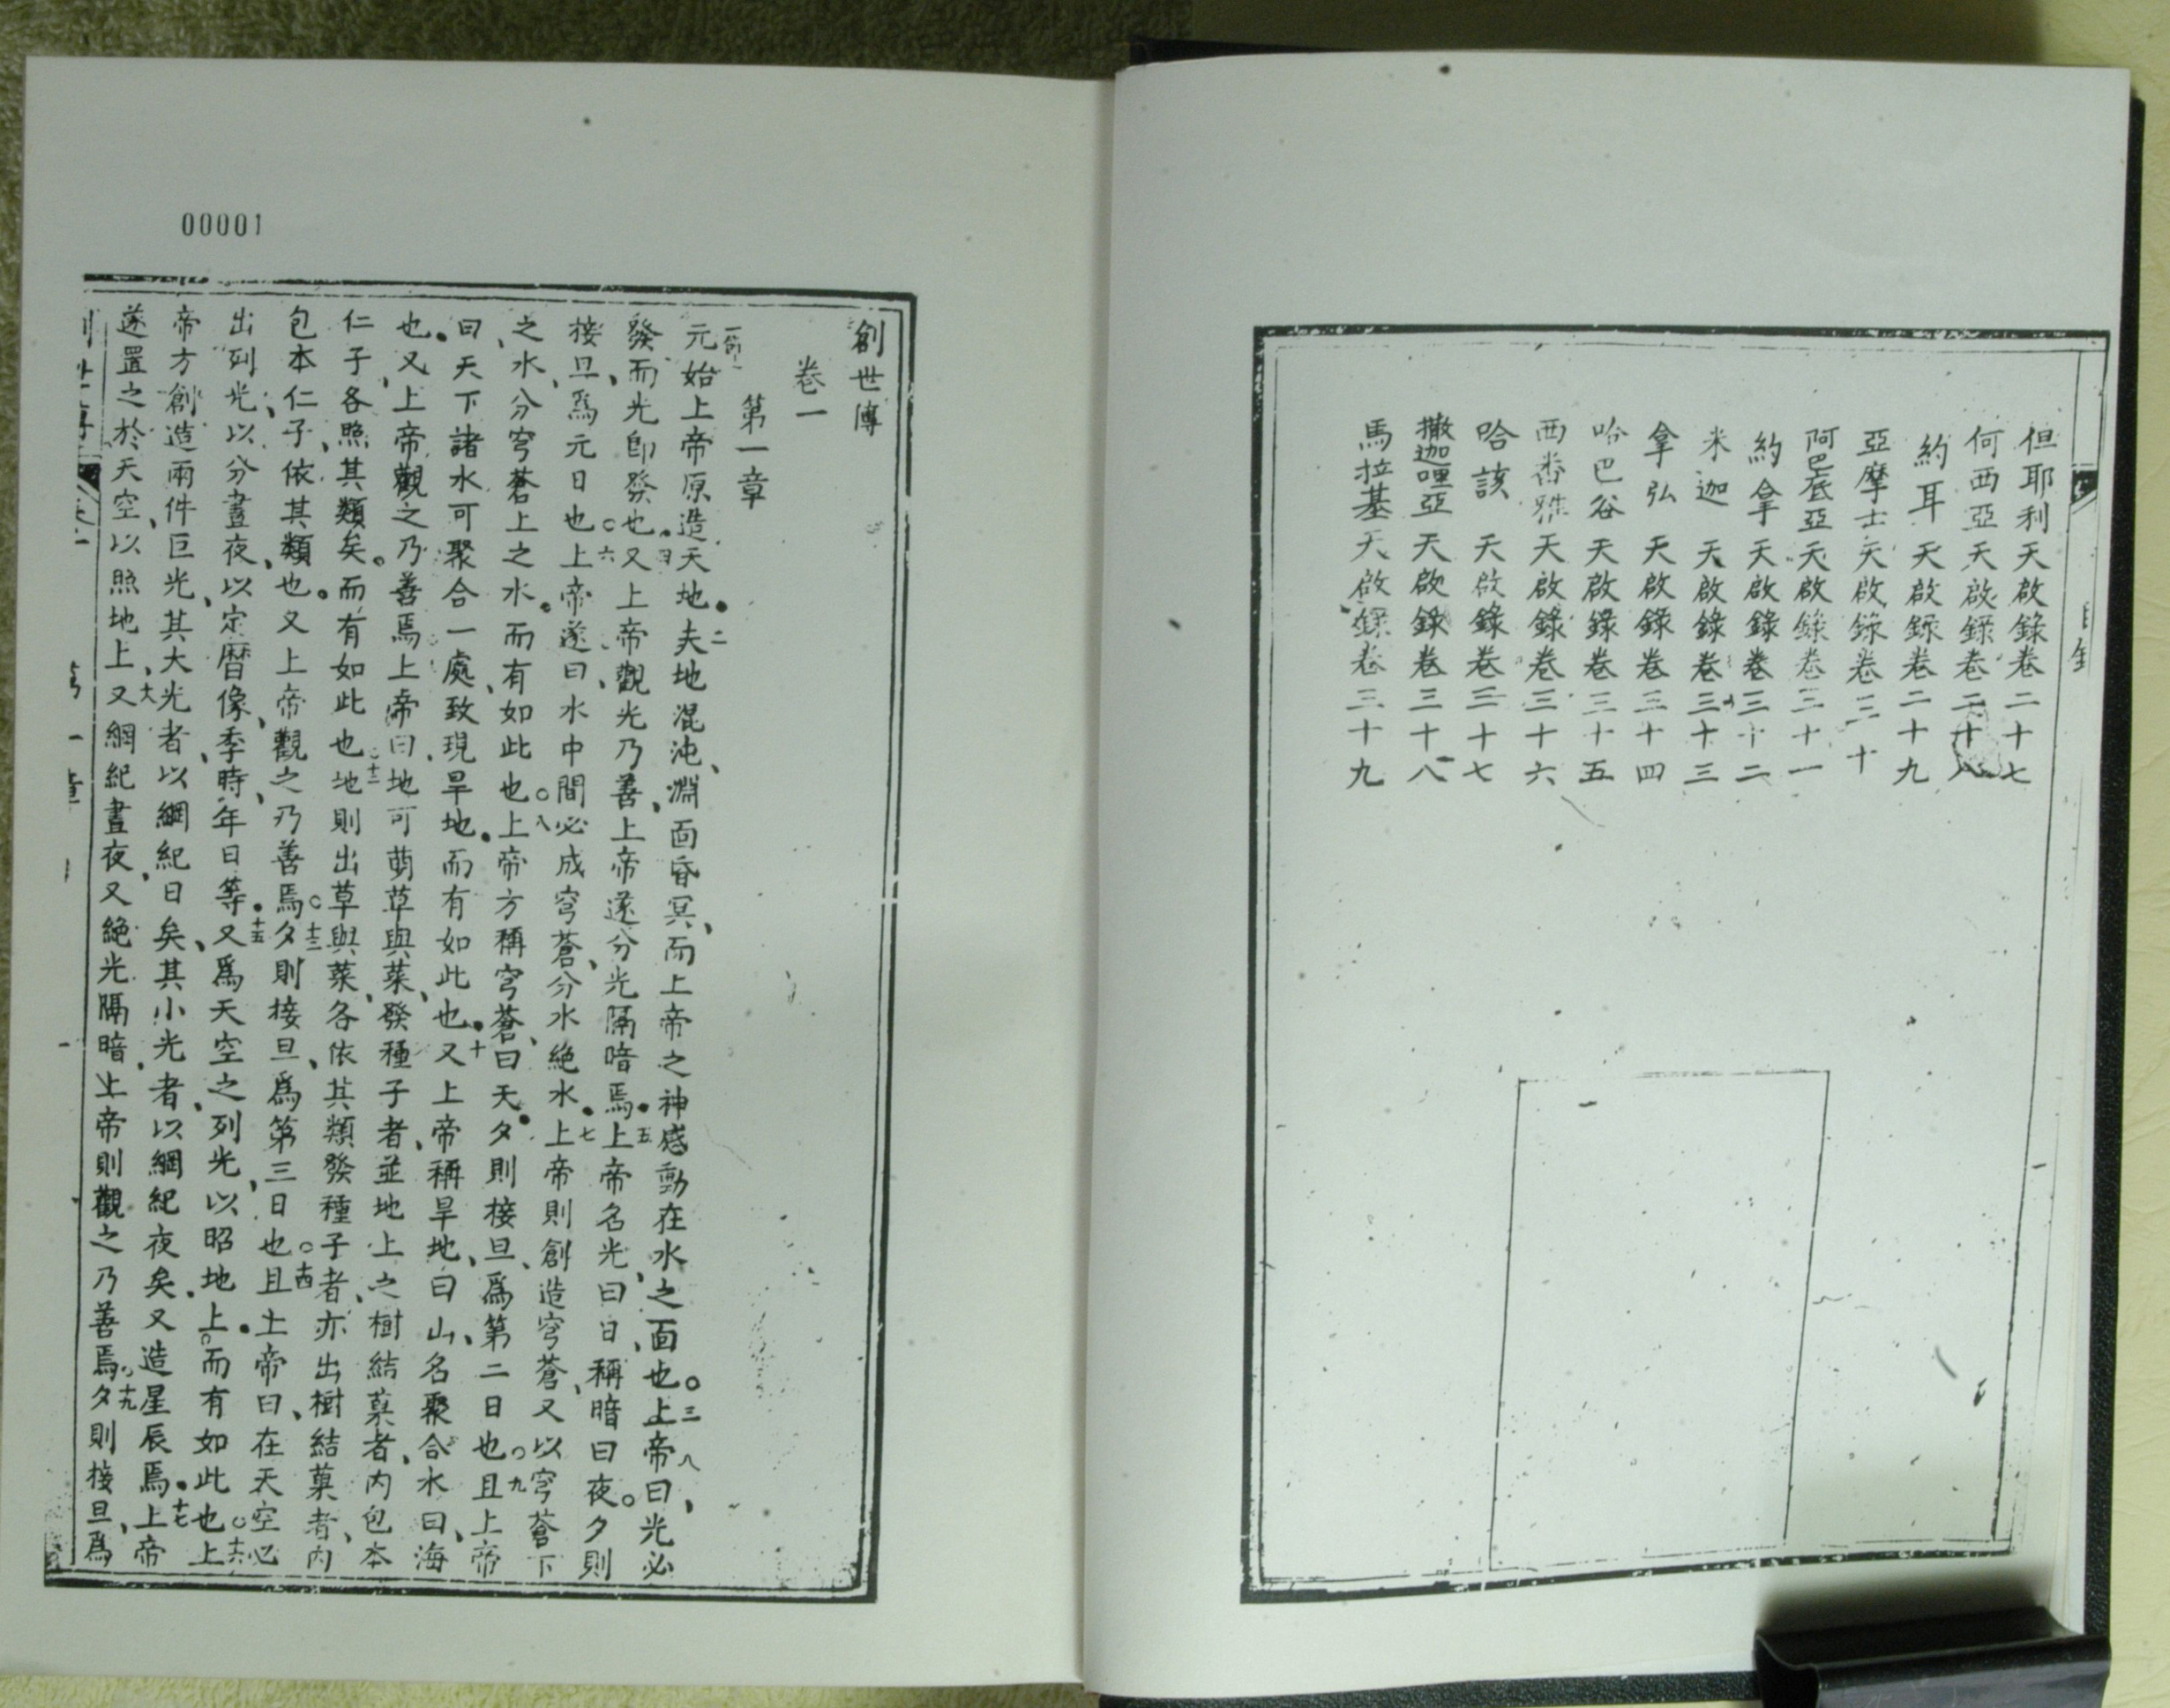 但耶利天啟錄卷二十七
何西亞天啟錄卷二十八
約耳天啟錄卷二十九
亞摩士天啟錄卷三十
阿巴底亞天啟錄卷三十一
約拿天啟錄卷三十二
米迦天啟錄卷三十三
拿弘天啟錄卷三十四
哈巴谷天啟錄卷三十五
西番雅天啟錄卷三十六
哈該天啟錄卷三十七
撒迦哩亞天啟錄卷三十八
馬拉基天啟錄卷三十九
00001
創世傳
卷一
第一章
元始上帝原造天地。二夫地混沌、淵面昏冥、而上帝之神感動在水之面也。三上帝曰、光必
發、而光即發也。四又上帝觀光乃善、上帝遂分光隔暗焉。五上帝名光曰日、稱暗曰夜。夕則
接旦、爲元日也。六上帝遂曰、水中間必成穹蒼、分水絶水。七上帝則創造穹蒼、又以穹蒼下
之水、分穹蒼上之水。而有如此也。八上帝方稱穹蒼、曰天。夕則接旦、爲第二日也。九且上帝
曰、天下諸水可聚合一處、致現旱地。而有如此也。十又上帝稱旱地、曰山、名聚合水曰、海
也、又上帝觀之乃善焉。上帝曰、地可萌草與菜、發種子者、並地上之樹結菓者、内包本
仁子、各照其類矣。而有如此也。十二地則出草與菜各依其類發種子者、亦出樹結菓者、内
包本仁子、依其類也。又上帝觀之乃善焉。十三夕則接旦、爲第三日也。十四且上帝曰、在天空必
出列光、以分晝夜、以定曆像、季時、年日等。十五又爲天空之列光、以昭地上。而有如此也。十六上
帝方創造兩件巨光、其大光者、以綱紀日矣、其小光者、以綱紀夜矣、又造星辰焉。十七上帝
遂置之於天空、以照地上、十八又綱紀晝夜、又絶光隔暗、上帝則觀之乃善焉。十九夕則接旦、爲
第一章